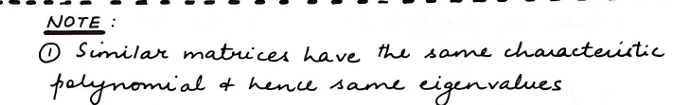 NOTE :
① Similar matrices have the same characteristic
polynomial & hence same eigenvalues